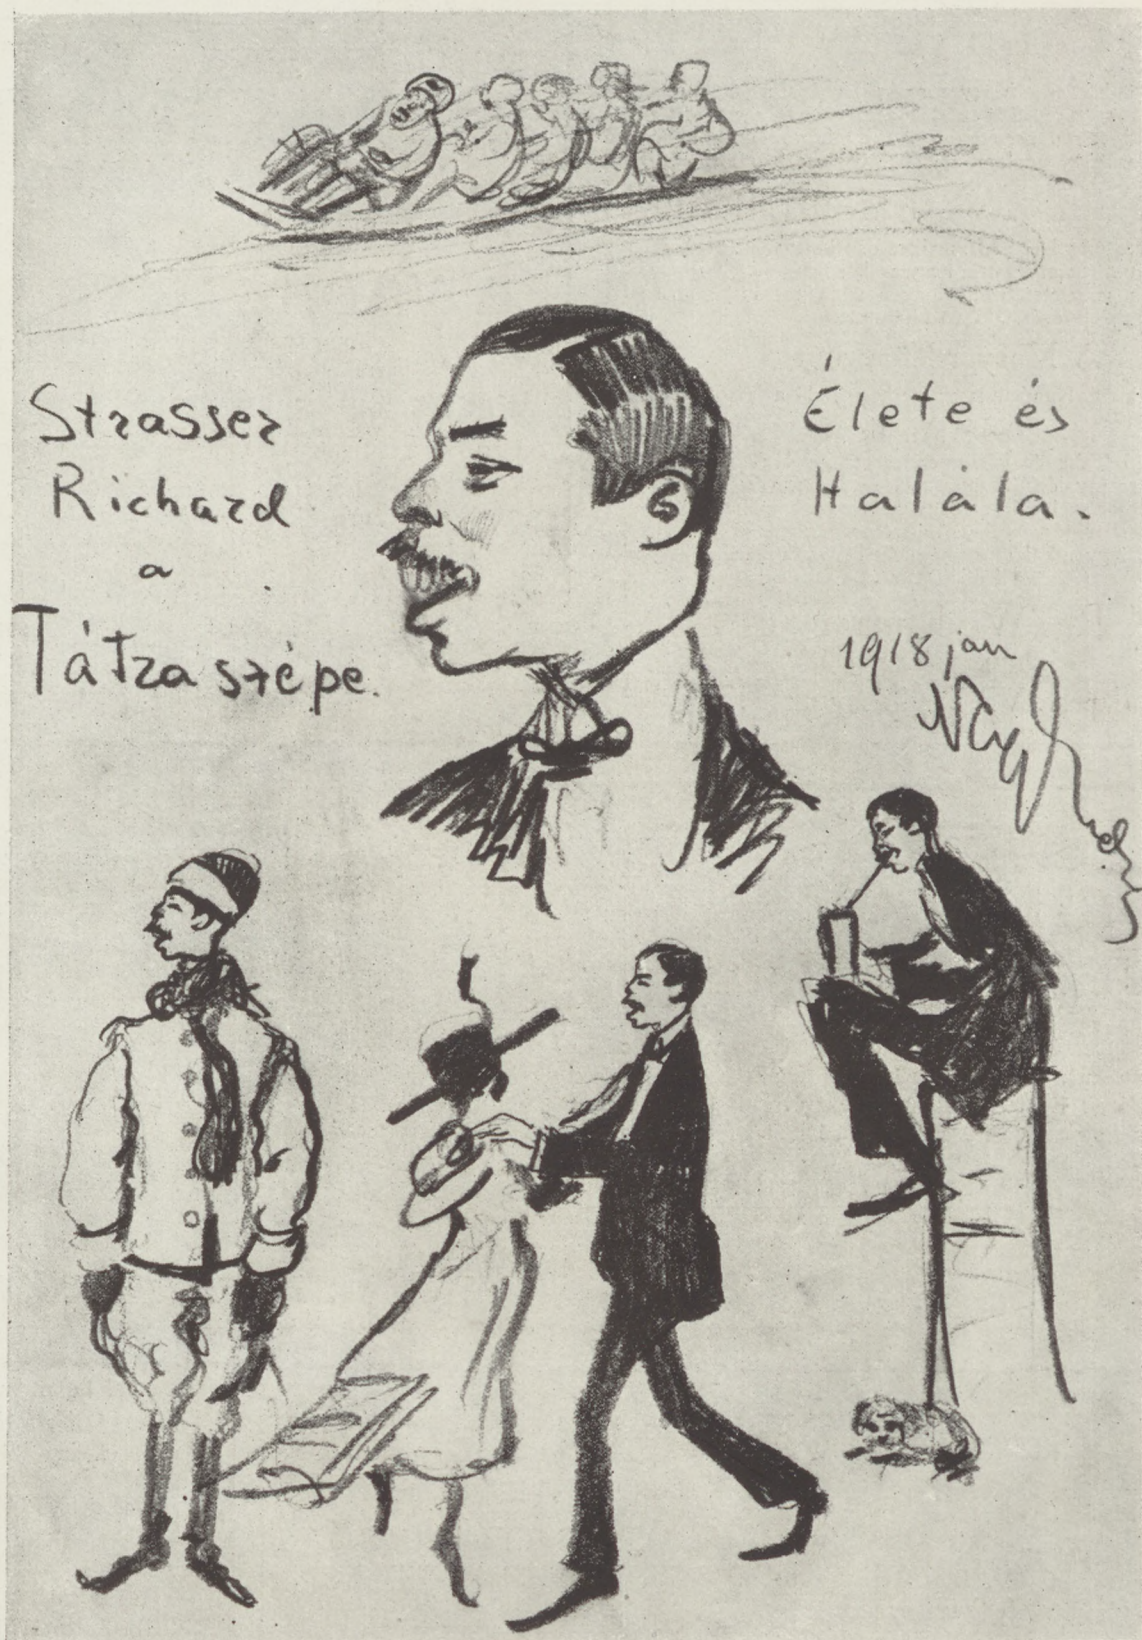 Strasser
Richard
a
Tátra szépe.
Élete és
Halála.
1918 jan